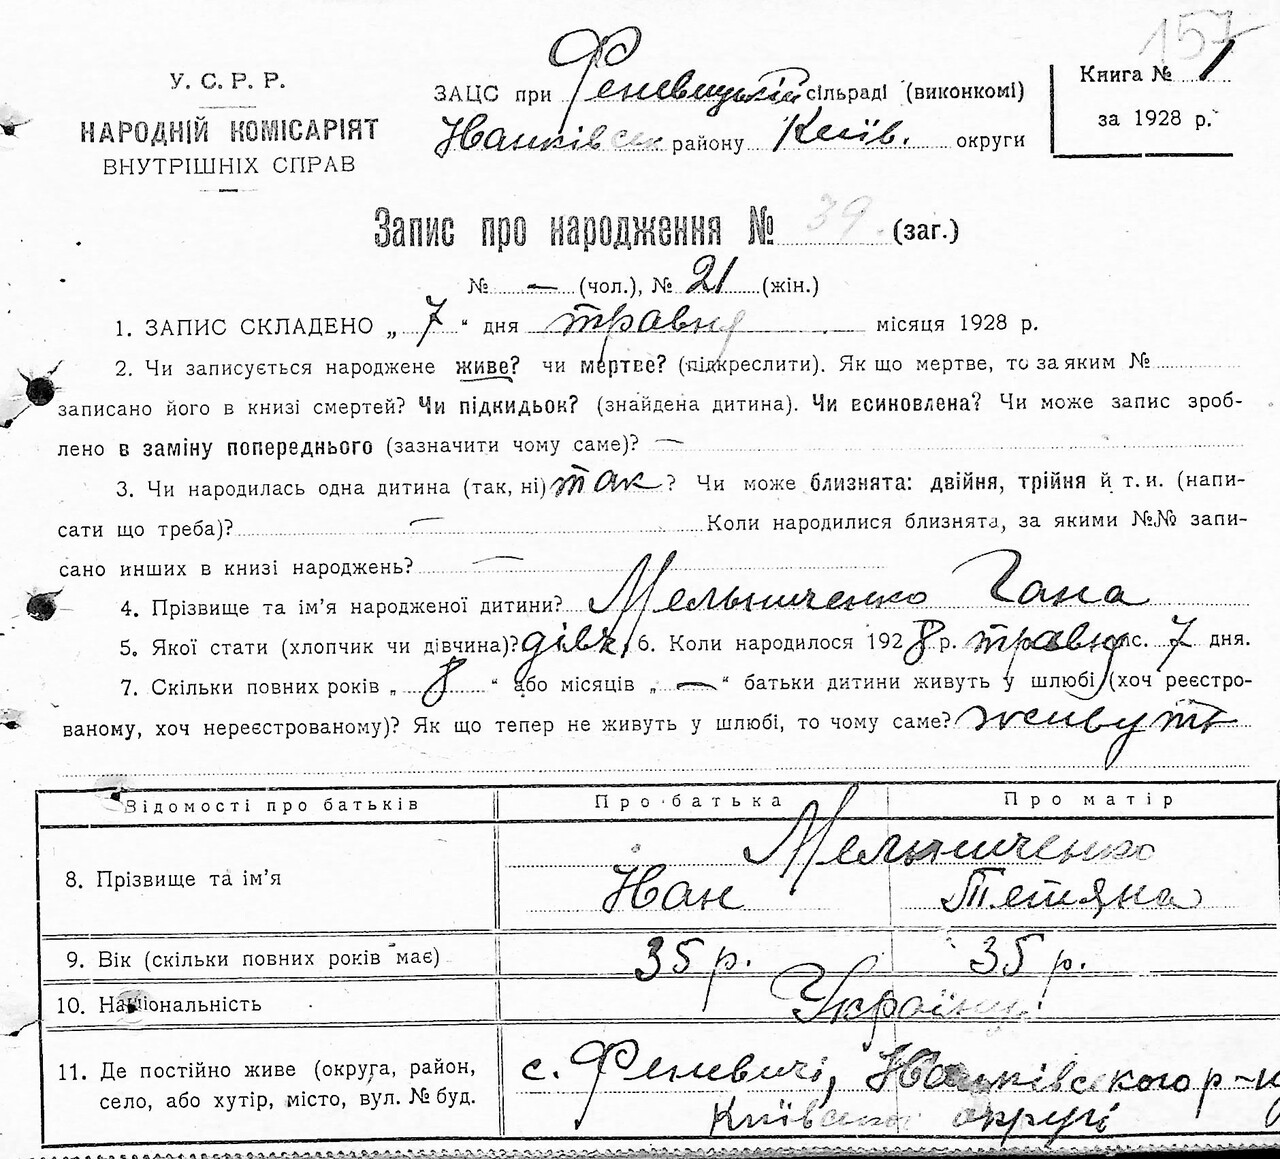 157
У.С.Р.Р.
НАРОДНІЙ КОМІСАРІЯТ
ВНУТРІШНІХ СПРАВ
ЗАЦС при Феневицькій сільраді (виконкомі)
Іванківськ району Київ. округи
Книга № 1
за 1928 р.
Запис про народження № 39. (заг.)
№ — (чол.), № 21 (жін.)
1. ЗАПИС СКЛАДЕНО „ 7 “ дня травня місяця 1928 р.
2. Чи записується народжене живе? чи мертве? (підкреслити). Як що мертве, то за яким №
записано його в книзі смертей? Чи підкидьок? (знайдена дитина). Чи всиновлена? Чи може запис зроб-
лено в заміну попереднього (зазначити чому саме)? —
3. Чи народилась одна дитина (так, ні) так ? Чи може близнята: двійня, трійня й т. и. (напи-
сати що треба)? — Коли народилися близнята, за якими №№ запи-
сано инших в книзі народжень? —
4. Прізвище та ім’я народженої дитини? Мельниченко Гана
5. Якої стати (хлопчик чи дівчина)? дівч. 6. Коли народилося 1928 р. травня міс. 7 дня.
7. Скільки повних років „ 8 “ або місяців „ — “ батьки дитини живуть у шлюбі (хоч реєстро-
ваному, хоч нереєстрованому)? Як що тепер не живуть у шлюбі, то чому саме? живуть
Відомості про батьків Про батька Про матір
Мельниченко
8. Прізвище та ім’я Іван Тетяна
9. Вік (скільки повних років має) 35 р. 35 р.
10. Національність Українці
11. Де постійно живе (округа, район, с. Феневичі, Іванківського р-ну
село, або хутір, місто, вул. № буд. Київської округи